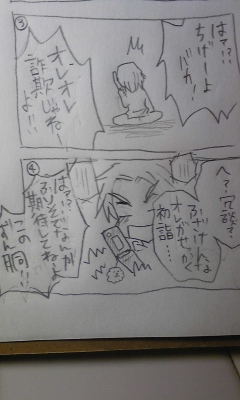 ③
はァ!?
ちげーよ
バカ!
オレオレ
詐欺じゃねー
よ!!
④
へ?冗談?
ふざけんな
オレがせっかく
初詣…
はァ!?
期待してねェよ
この